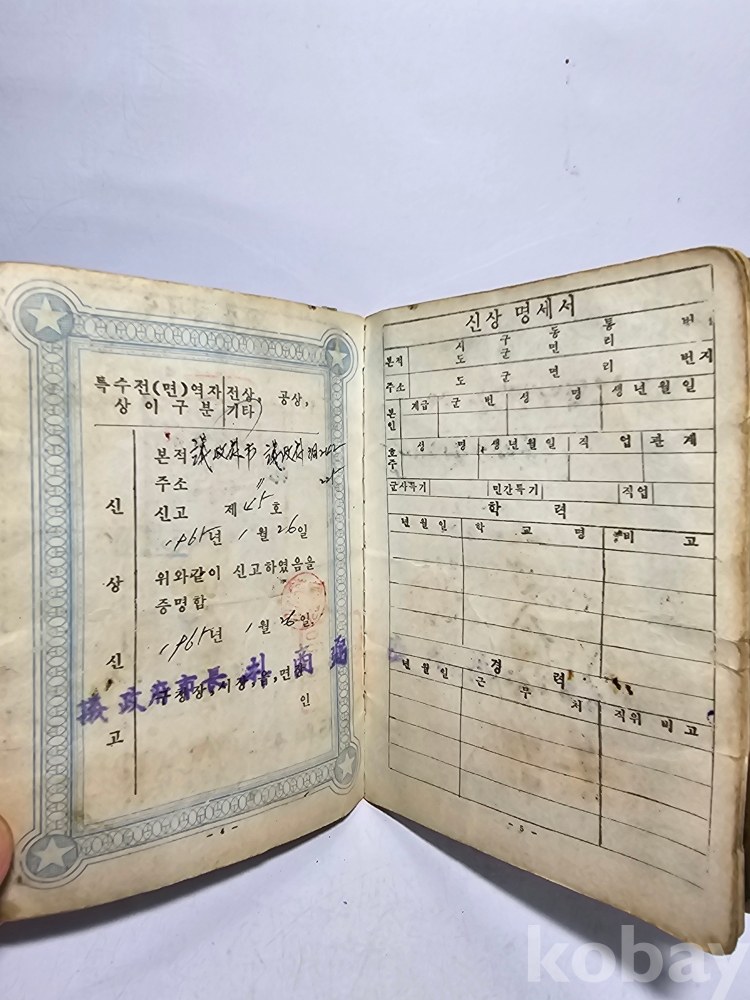 특수전(면)역자 전상, 공상,
상 이 구 분 기타
신 상 신 고
본적 議政府市 議政府
주소 〃
신고 제 45 호
1965년 1월 26일
위와같이 신고하였음을
증명합
1965년 1월 26일
구청장, 시장, 읍, 면장
議政府市長
인
- 4 -
신상 명세서
본적 시 도 구 군 동 면 통 리 번지
주소 도 군 면 리 번지
본인 계급 군 번 성 명 생년월일
호주 성 명 생년월일 직 업 관 계
군사특기 민간특기 직업
학 력
년월일 학 교 명 비 고
경 력
년월일 근 무 처 직위 비고
- 5 -
kobay